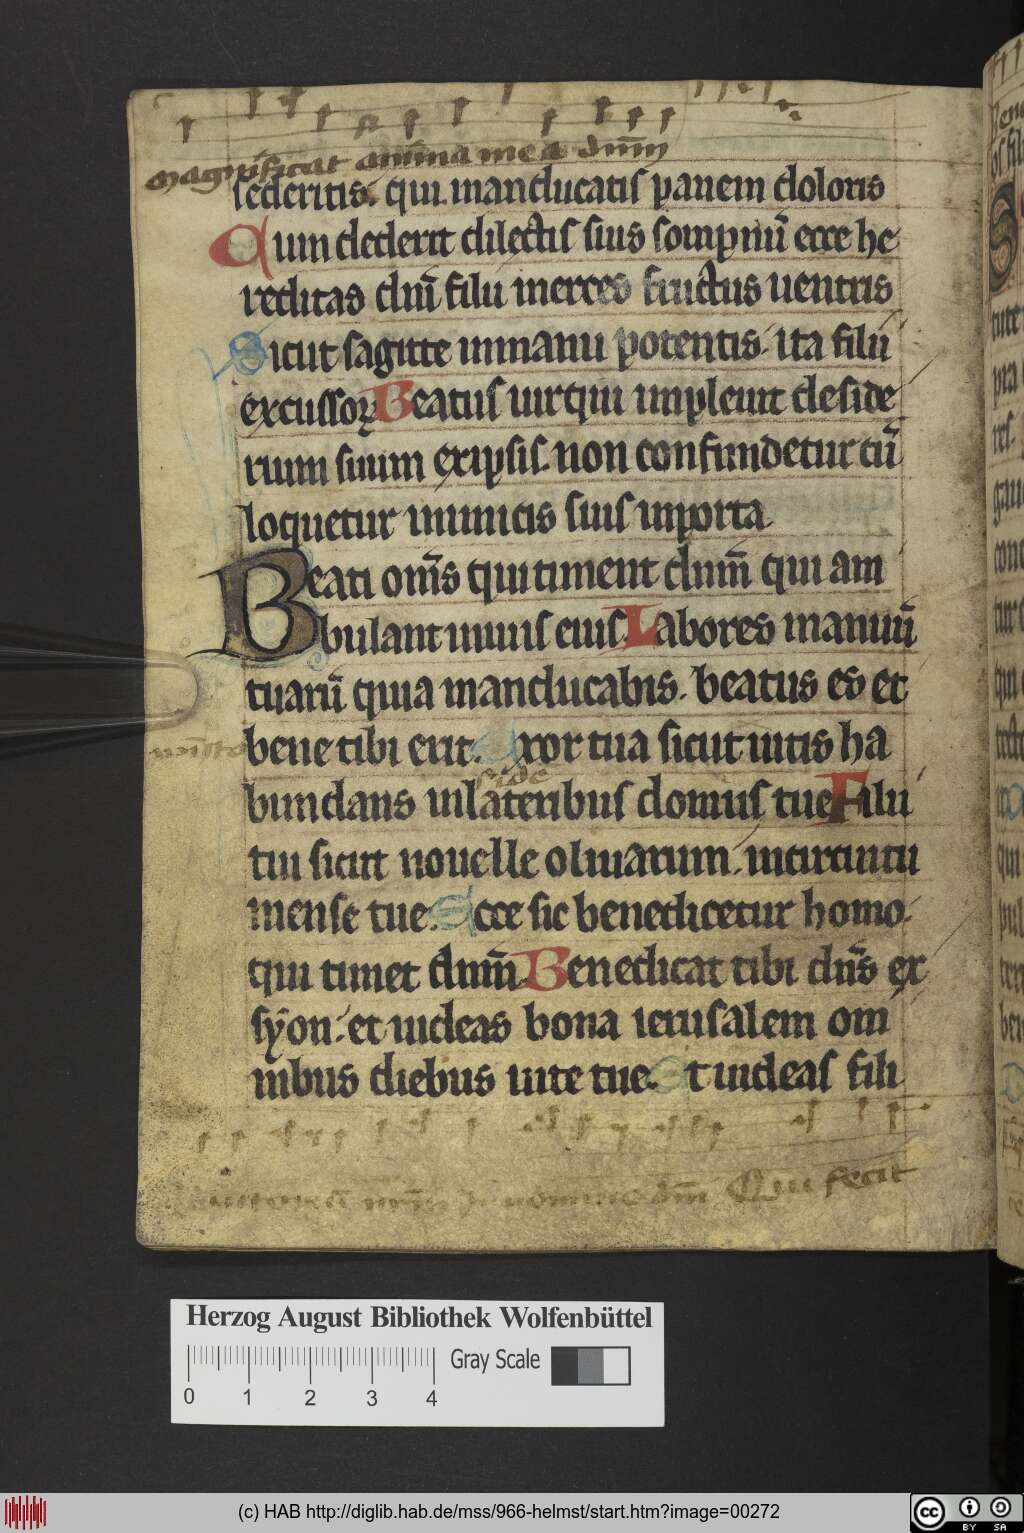 magnificat anima mea dn̄m
sederitis. qui manducatis panem doloris
Cum dederit dilectis suis sompnū ecce he
reditas dn̄i filii merces fructus uentris
Sicut sagitte in manu potentis. ita filii
excussoꝝ Beatus uir qui impleuit deside
rium suum ex ipsis. non confundetur cū
loquetur inimicis suis in porta
Beati om̄s qui timent dn̄m qui am
bulant in uiis eius. Labores manuū
tuarū quia manducabis. beatus es et
bene tibi erit. Uxor tua sicut uitis ha
bundans in lateribus domus tue Filii
tui sicut nouelle oliuarum. in circuitu
mense tue. Ecce sic benedicetur homo.
qui timet dn̄m Benedicat tibi dn̄s ex
syon. et uideas bona ierusalem om
nibus diebus uite tue. Et uideas fili
in nomine dn̄i Qui fecit
Herzog August Bibliothek Wolfenbüttel
Gray Scale
0 1 2 3 4
(c) HAB http://diglib.hab.de/mss/966-helmst/start.htm?image=00272
cc BY SA